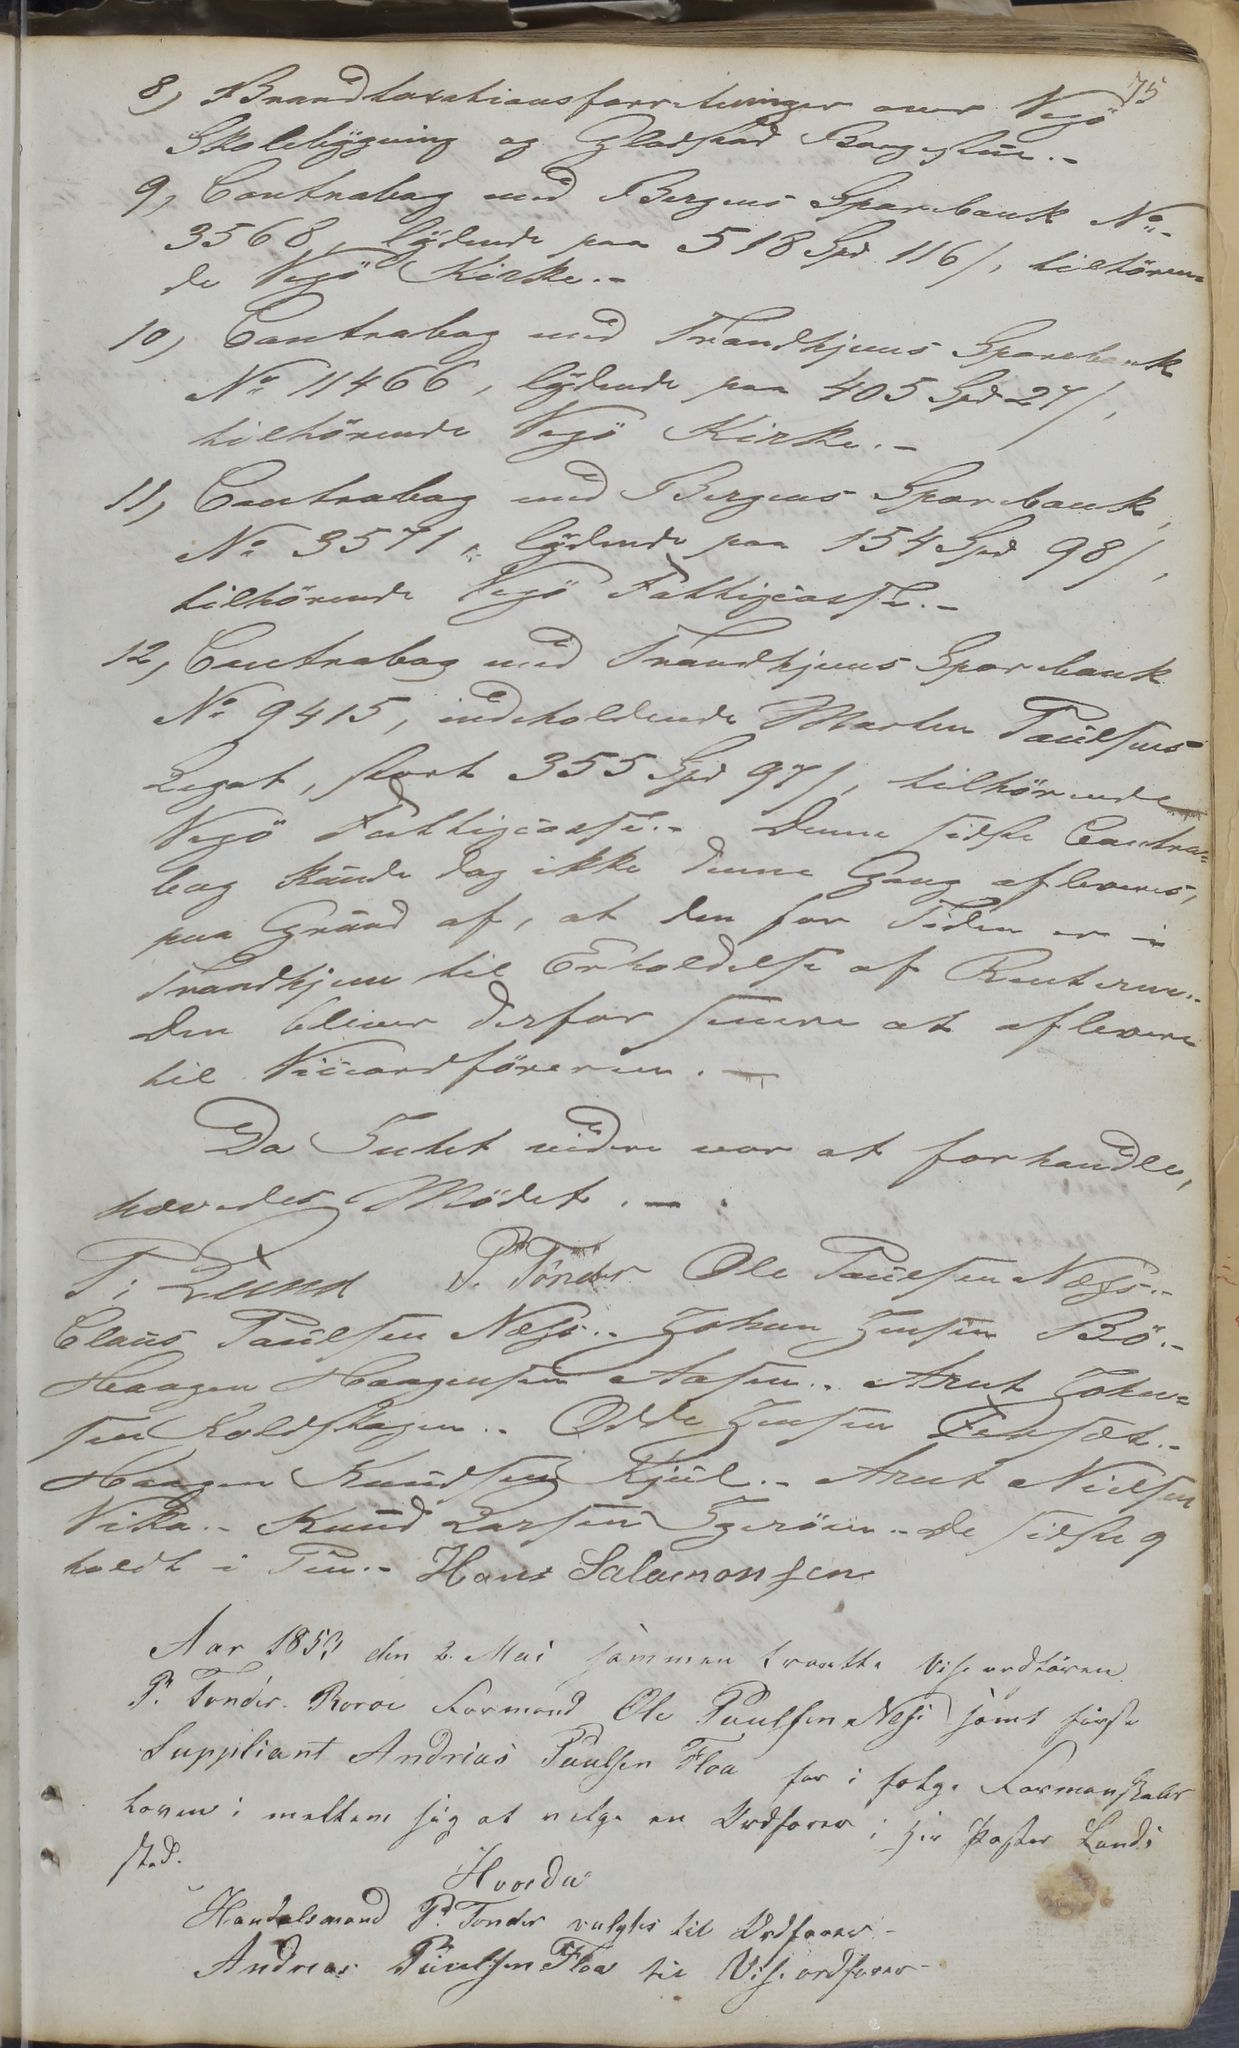 75
8, Brandtaxationsforretninger over Vegö
Skolebÿgning og Gladstad Borgestue.-
9, Contrabog med Bergens Sparebank No-
3568, lÿdende paa 518 Spd 116/, tilhören-
de Vegö Kirke.-
10, Contrabog med Trondhjems Sparebank
No 11466, lÿdende paa 405 Spd 27/,
tilhörende Vegö Kirke.-
11, Contrabog med Bergens Sparebank,
No 3571, lÿdende paa 154 Spd 98/,
tilhörende Vegö Fattigcasse.-
12, Contrabog med Trondhjems Sparebank
No 9415, indeholdende Marten Paulsens
Legat, stort 355 Spd 97/, tilhörende
Vegö Fattigcasse.- Denne sidste Contra-
bog kunde dog ikke denne Gang afleveres,
paa Grund af, at den for Tiden er i
Trondhjem til Erholdelse af Renterne.-
Den bliver derfor senere at aflevere
til Viceordföreren.-
Da Intet videre var at forhandle,
hævedes Mödet.-
T: Lund P. Tönder Ole Paulsen Næss.-
Claus Paulsen Næss.- Johan Jensen Bö.-
Haagen Haagensen Aasen.- Arnt Johan-
sen Koldskagen.- Odde Jensen
Haagen Knudsen Kjul.- Arnt Nielsen
Vika.- Knud Larsen De sidste 9
holdt i Pen.- Hans Salamonsen
Aar 1853 den 2. Mai sammen traatte Viseordfören
P. Tonder. Roröe Formand Ole Paulsen Nesi samt förste
Suppliant Andrias Paulsen Floa for i følge Formanskabs
loven i mellem sig at velge en Ordforer i Hr Paster Lunds
sted.
Hvorda
Handelsmand P. Tonder valgtes til Ordforer-
Andreas Paulsen Floa til Viseordforer-